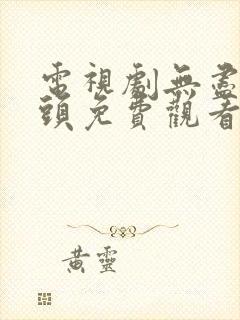 電視劇無盡
頭免費觀看
黃靈